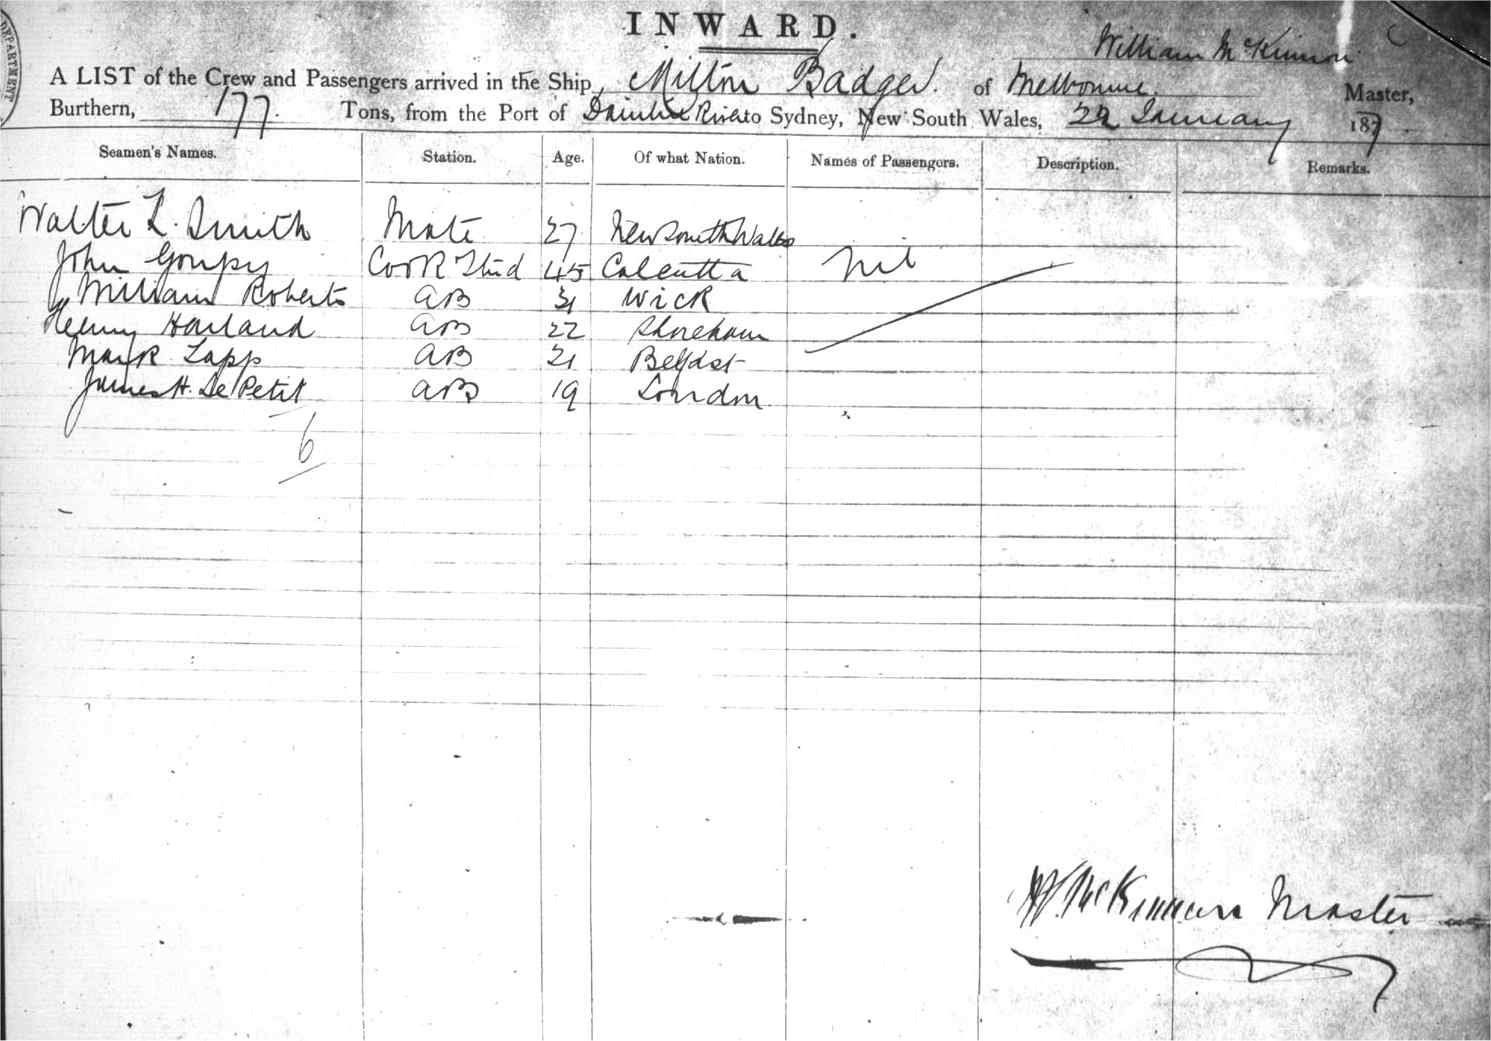 DEPARTMENT
INWARD.
William McKinnon
A LIST of the Crew and Passengers arrived in the Ship, Milton Badger of Melbourne. Master,
Burthern, 177. Tons, from the Port of Daintree River to Sydney, New South Wales, 22 January 187
Seamen's Names. Station. Age. Of what Nation. Names of Passengers. Description. Remarks.
Walter L. Smith Mate 27 New South Wales
John Goupy Cook & Stud 45 Calcutta Nil
William Roberts AB Wick
Henry Harland AB 22 Shoreham
Mark Lapp AB 21 Belfast
James H. De Petit AB 19 London
6
W. McKinnon Master